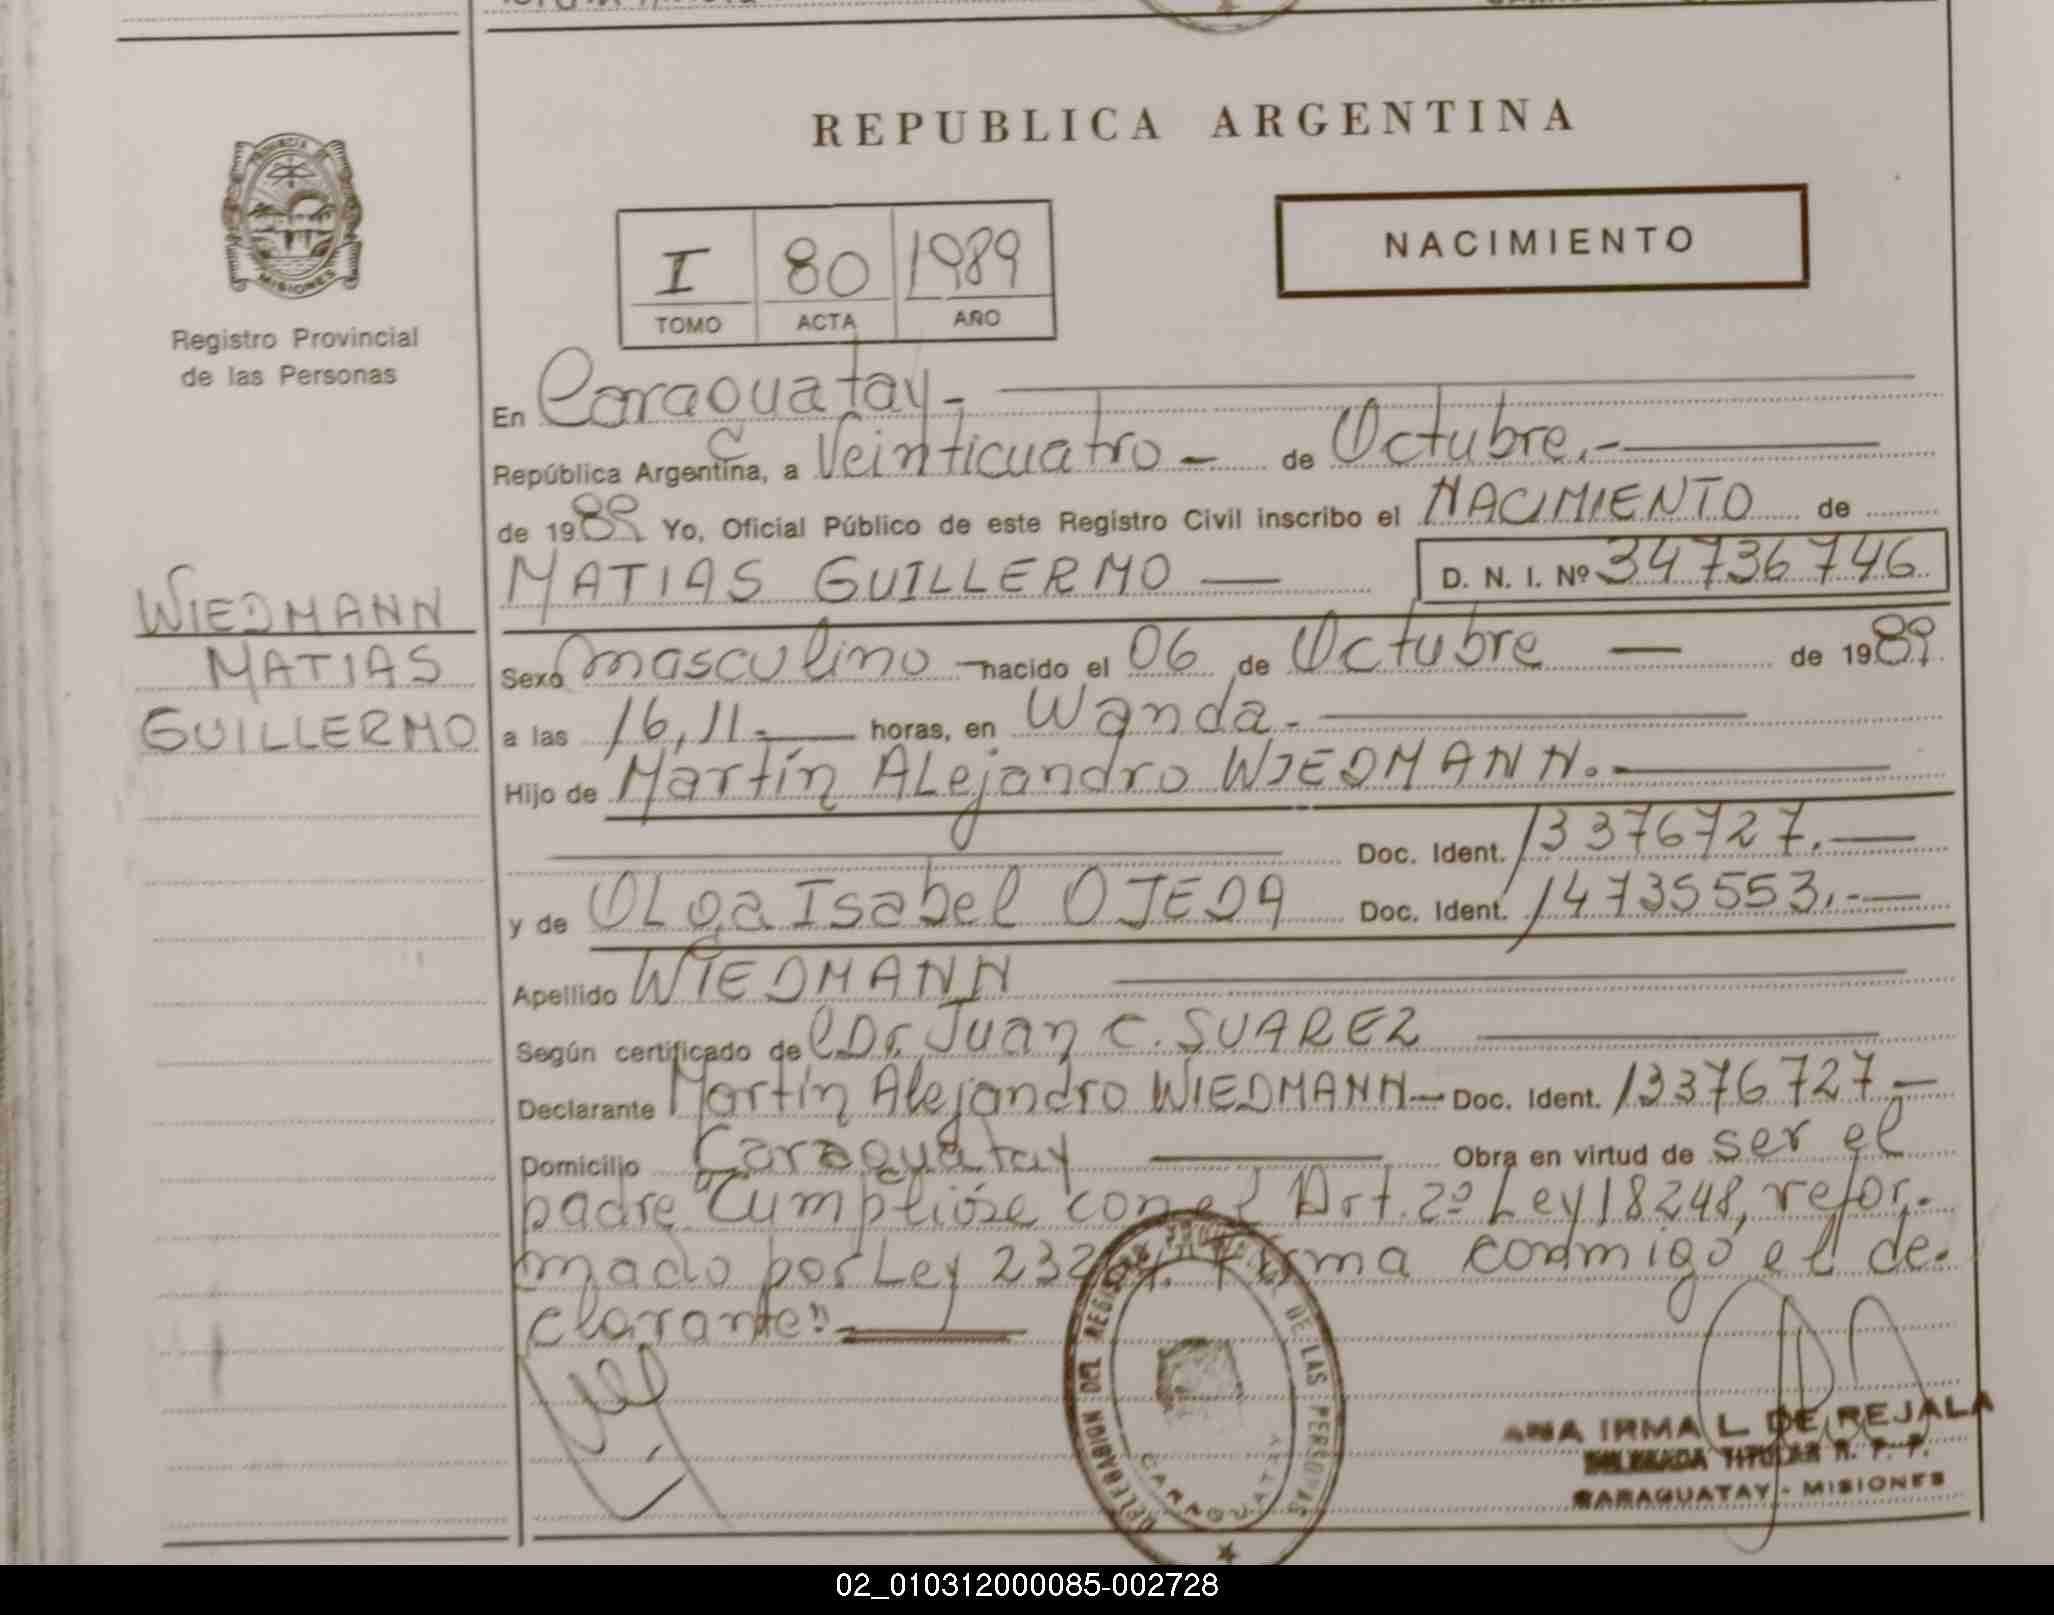 REPUBLICA ARGENTINA
PROVINCIA DE
MISIONES
Registro Provincial
de las Personas
I 80 1989
TOMO ACTA AÑO
NACIMIENTO
En Caraguatay.-
República Argentina, a Veinticuatro - de Octubre.-
de 1989 Yo, Oficial Público de este Registro Civil inscribo el NACIMIENTO de
MATIAS GUILLERMO D. N. I. Nº 34736746
WIEDMANN
MATIAS
GUILLERMO
Sexo masculino nacido el 06 de Octubre — de 1989
a las 16,11.- horas, en Wanda.-
Hijo de Martín ALejandro WIEDMANN.-
Doc. Ident. 13376727.-
y de OLga Isabel OJEDA Doc. Ident. 14735553.-
Apellido WIEDMANN
Según certificado de Dr. Juan C. SUAREZ
Declarante Martín Alejandro WIEDMANN- Doc. Ident. 13376727.-
Domicilio Caraguatay Obra en virtud de ser el
padre Cumplióse con el Art. 2º Ley 18248, refor.-
mado por Ley Firma conmigo el de-
clarante"-
DELEGACION DEL REGISTRO DE LAS PERSONAS
CARAGUATAY
ANA IRMA L. DE REJALA
DELEGADA TITULAR R. P. P.
CARAGUATAY - MISIONES
02_010312000085-002728